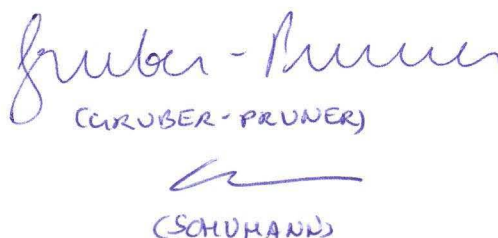 Gruber-Pruner
(GRUBER-PRUNER)
(SCHUMANN)